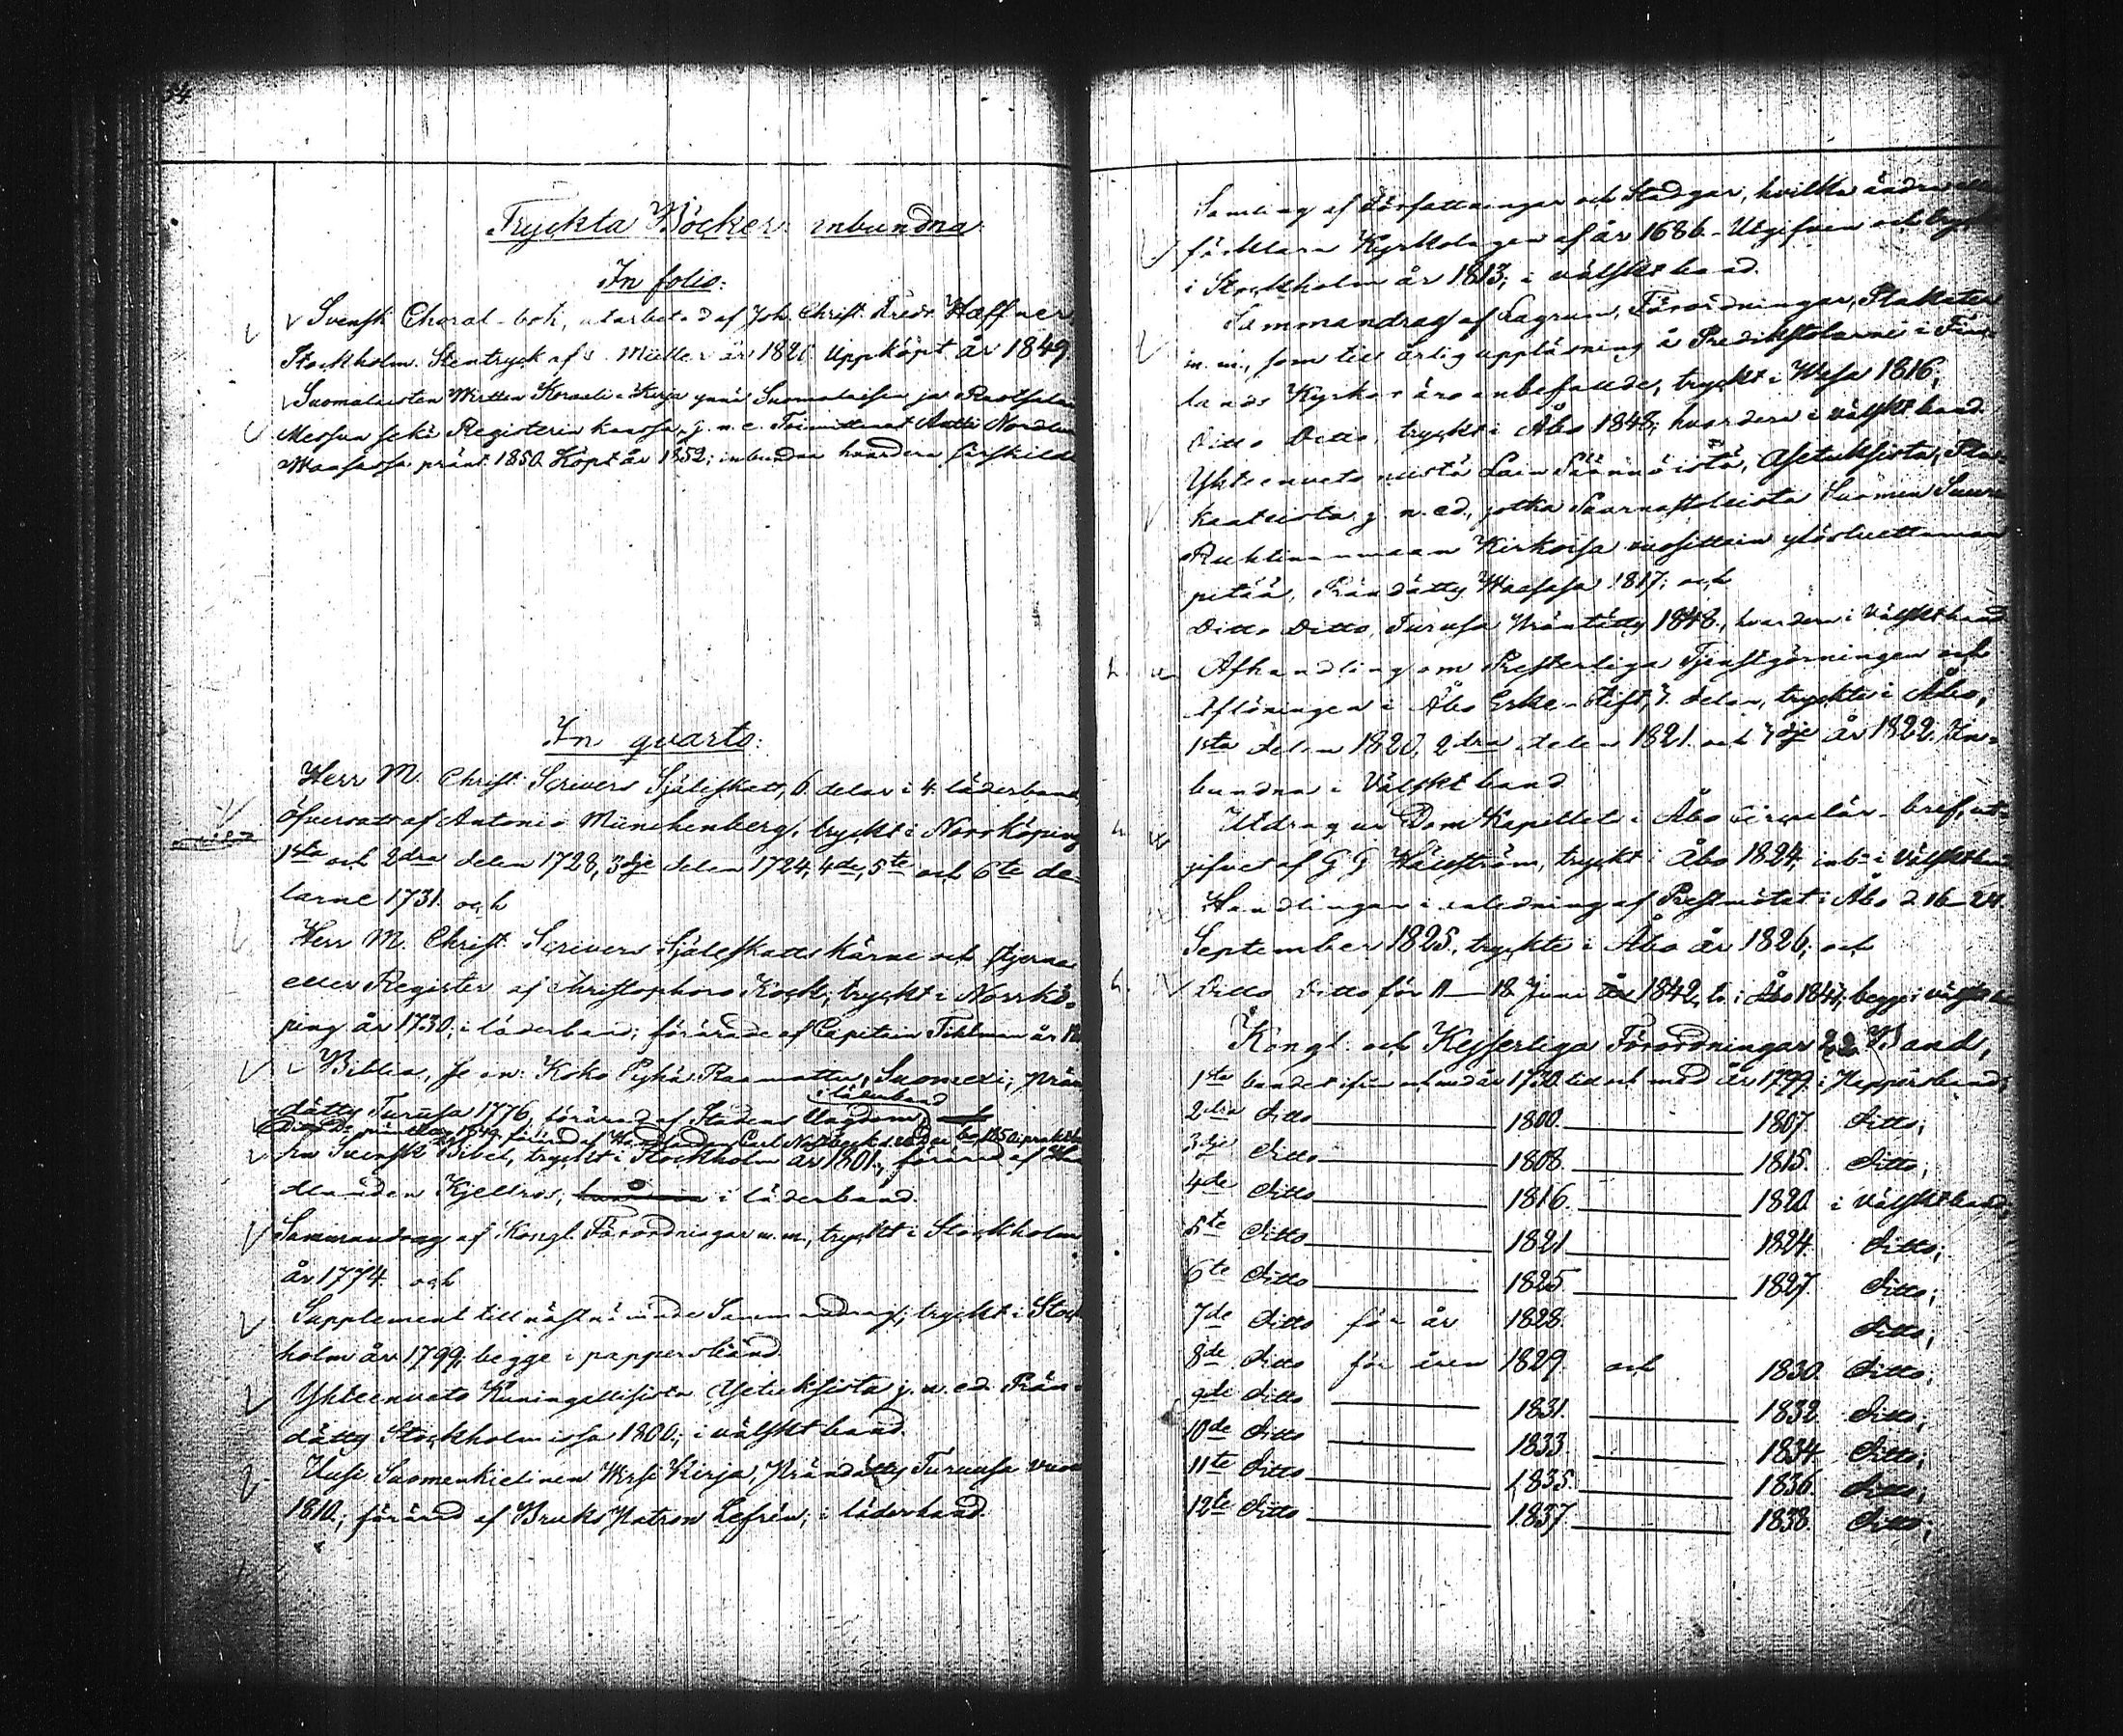 54.
Tryckta Böcker inbundna
In folio:
Svensk Choral-bok, utarbetad af Joh. Christ. Fredr. Hæffner
Stockholm. Stentryck af Müller år 1820. Uppköpt år 1849.
Suomalaisten Wirtten Koraali-Kirja ynnä Suomalaisen ja Ruotsalai
Messun sekä Registerin kanssa, j. n. e. Toimittanut Antti Nordlun
Waasassa pränt. 1850. Köpt år 1852; inbundna hvardera särskilde
In qvarto:
Herr M. Christ. Scrivers Själiskatt, 6. delar i 4. läderband,
öfversatt af Antonio Münchenberg, tryckt i Norrköping
1sta och 2dra delen 1728, 3dje delen 1724, 4de, 5te och 6te de-
larne 1731. och
Herr M. Christ. Scrivers Själeskatts kärne och stjerna
eller Register af Christophoro Kock, tryckt i Norrkö-
ping år 1730; i läderband; förärade af Capitain Tihlman år
Biblia, Se on: Koko Pyhä Raamattu, Suomexi, Prän
i läderband
dätty Turusa 1776, förärad af Stadens Ungdom,
En Svensk Bibel, tryckt i Stockholm år 1801, förärad af Han
dlanden Kjellros, i läderband.
Sammandrag af Kongl. Förordningar m. m., tryckt i Stockholm
år 1774. och
Supplement till nästnämnde Sammandrag, tryckt i Stock
holm år 1799; begge i pappersband.
Yhteenveto Kuningallisista Asetuksista j. n. ed. Prän-
dätty Stockholmissa 1806; i välskt band.
Uusi Suomenkielinen Wirsi Kirja, Prändätty Turusa vuon
1810, förärad af Bruks Patron Lefrén; i läderband.
Samling af Författningar och Stadgar, hvilka ändra eller
förklara Kyrkolagen af år 1686. Utgifven och tryckt
i Stockholm år 1813; i välskt band.
Sammandrag af Lagrum, Förordningar, Plakater
m. m., som till årlig uppläsning å Predikstolarne i Fin-
lands Kyrkor äro anbefallde, tryckt i Wasa 1816,
Ditto Ditto, tryckt i Åbo 1848; hvardera i välskt band.
Yhteenveto niistä Lain Säännöistä, Asetuksista, Pla-
kaateista j. n. ed., jotka Saarnastoleista Suomen Suuri
Ruhtinanmaan Kirkoisa vuosittain ylösluettaman
pitää, Prändätty Waasasa 1817; och
Ditto Ditto, Turusa Präntätty 1848, hvardera i Välskt band
Afhandling om Presterliga Tjenstgörningen och
Aflöningen i Åbo Erke-Stift, 3. delar, tryckte i Åbo,
1sta delen 1820, 2dra delen 1821. och 3dje år 1822. In-
bundna i Välskt band
Utdrag ur DomKapitlets i Åbo Circulär-bref, ut-
gifvet af G G Hällström, tryckt i Åbo 1824, inb. i Välskt band
Handlingar i anledning af Prestmötet i Åbo d. 16-24.
September 1825. tryckte i Åbo år 1826, och
Ditto Ditto för 11-18 Juni 1842, i Åbo 1842, begge i välskt
Kongl. och Kejserliga Förordningar 22 Band,
1sta bandet ifrån och med år 1730. till och med år 1799. i Pappersband;
2dra Ditto 1800. 1807. Ditto;
3dje Ditto 1808. 1815. Ditto;
4de Ditto 1816. 1820. i Välskt band;
5te Ditto 1821 1824. Ditto;
6te Ditto 1825 1827. Ditto;
7de Ditto för år 1828. Ditto;
8de Ditto för åren 1829. och 1830. Ditto;
9de Ditto 1831. 1832. Ditto;
10de Ditto 1833. 1834. Ditto;
11te Ditto 1835. 1836. Ditto;
12te Ditto 1837. 1838. Ditto;